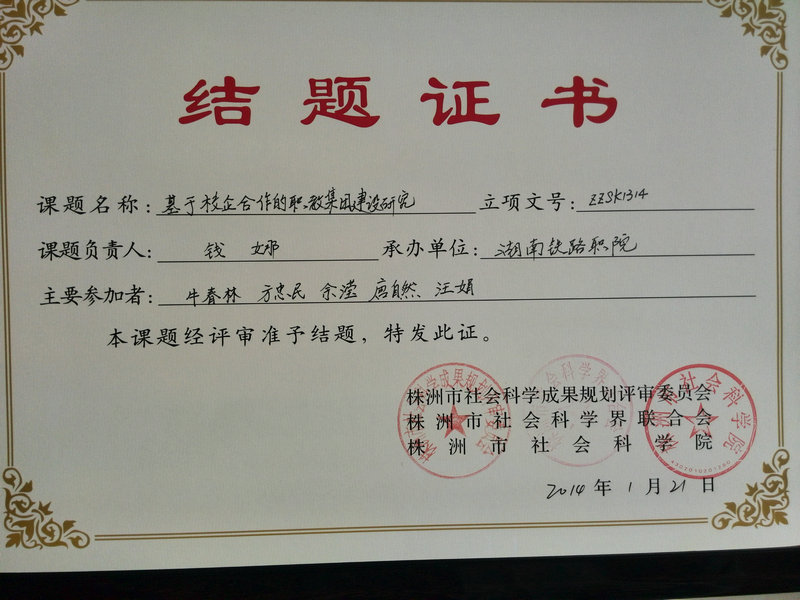 结题证书
课题名称：基于校企合作的职教集团建设研究 立项文号：ZZSK1314
课题负责人：钱娜 承办单位：湖南铁路职院
主要参加者：牛春林 方忠民 余滢 唐自然 汪娟
本课题经评审准予结题，特发此证。
株洲市社会科学成果规划评审委员会
株洲市社会科学界联合会
株洲市社会科学院
2014年1月21日